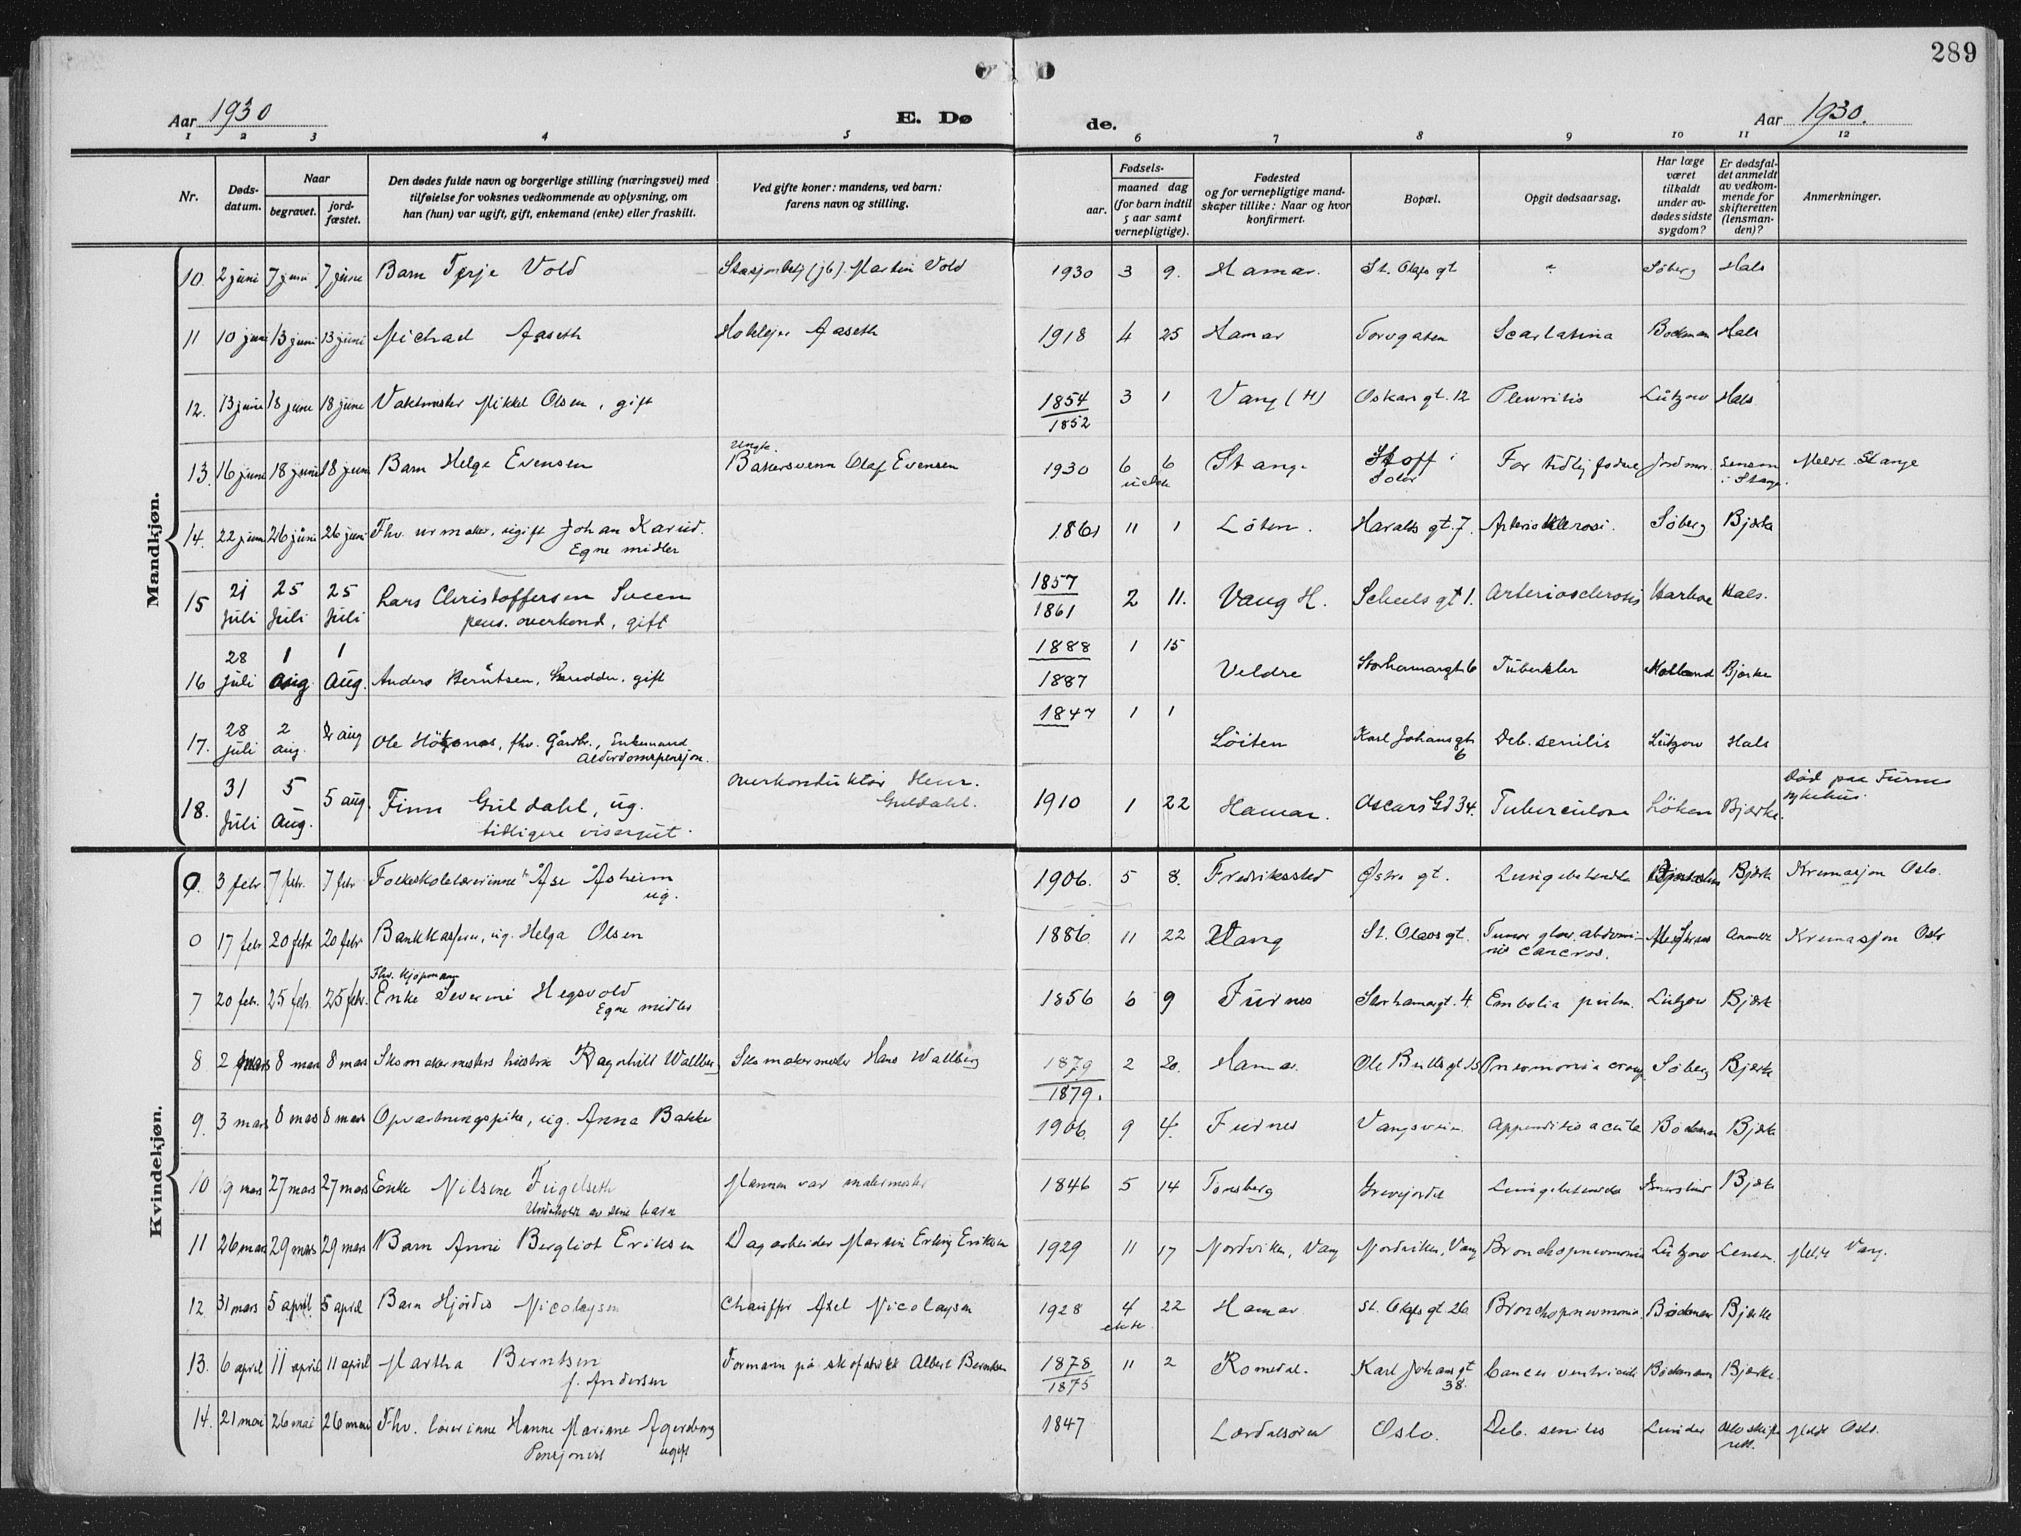 289
Aar 1930
E. Dø
de.
Aar 1930.
1 2 3 4 5 6 7 8 9 10 11 12
Nr.
Døds-
datum.
Naar
begravet.
jord-
fæstet.
Den dødes fulde navn og borgerlige stilling (næringsvei) med
tilføielse for voksnes vedkommende av oplysning, om
han (hun) var ugift, gift, enkemand (enke) eller fraskilt.
Ved gifte koner: mandens, ved barn:
farens navn og stilling.
Fødsels-
aar.
maaned dag
(for barn indtil
5 aar samt
vernepligtige).
Fødested
og for vernepligtige mand-
skaper tillike: Naar og hvor
konfirmert.
Bopæl.
Opgit dødsaarsag.
Har læge
været
tilkaldt
under av-
dødes sidste
sygdom?
Er dødsfal-
det anmeldt
av vedkom-
mende for
skifteretten
(lensman-
den)?
Anmerkninger.
Mandkjøn.
10. 2 juni 7 juni 7 juni Barn Terje Vold Martin Vold 1930 3 9. Hamar. St. Olafs gt " Söberg Hals
11 10 juni 13 juni 13 juni Michael Aaseth Aaseth 1918 4 25 Hamar Torvgaten Scarlatina Bodman Hals
12. 13 juni 18 juni 18 juni Vaktmester Mikkel Olsen, gift 1854 3 1 Vang (H) Oskars gt. 12 Pleuritis Lützow Hals
1852
Ungk.
13. 16 juni 18 juni 18 juni Barn Helge Evensen Bakersvenn Olaf Evensen 1930 6 6 Stange Hoff For tidlig födt Jordmor Meldt Stange
Solör i Stange.
14. 22 juni 26 juni 26 juni Fhv. urmaker, ugift Johan Karud. 1861 11 1 Löten. Haralds gt. 7. Söberg Bjerke
Egne midler
15 21 Juli 25 Juli 25 Juli Lars Christoffersen Sveen 1857 2 11. Vang H. Scheels gt 1. Arteriosclerosis Harboe Hals.
pens. overkond, gift 1861
16 28 juli 1 aug 1 Aug. Anders Berntsen, Skredder, gift 1888 1 15 Veldre Storhamargt 6 Tuberkler Bjerke
1887
17. 28 juli 2 aug. 2 aug Ole fhv. Gårdbr., Enkemand 1847 1 1 Löiten Karl Johansgt 6 Deb. senilis Lützow Hals
Alderdomspensjon.
18. 31 Juli 5 Aug. 5 aug. Finn Guldahl, ug. Overkonduktör Henr. Guldahl. 1910 1 22 Hamar. Oscars Gd 34. Tuberculose Löken Bjerke. Död paa Furnes sykehus.
tidligere visergut.
Kvindekjøn.
0. 3 febr 7 febr. 7 febr Folkeskolelærerinne Åse Åsheim 1906. 5 8. Fredrikstad Østre gt. Lungebetendelse Bjerke Kremasjon Oslo.
ug.
0 17 febr. 20 febr 20 febr Bankkasserer, ug. Helga Olsen 1886. 11 22 Vang St. Olavs gt. Tumor abdomi-
nis cancros. Kremasjon Oslo
Fhv. kjøpmann
7 20 febr. 25 febr. 25 febr. Enke Severine Hegsvold 1856 6 9 Furnes Storhamargt. 4. Embolia pulm. Lützow Bjerke
Egne midler
8 2 mars 8 mars 8 mars Skomakermesters hustru Ragnhild Wallberg Skomakermester Hans Wallberg 1879 2 20. Hamar. Ole Bulls gt 15 Pneumonia croup Söberg Bjerke
1879.
9. 3 mars 8 mars 8 mars Opvartningspike, ug. Anna Bakke 1906. 9 4. Furnes Vangsveien Appendicitis acuta Bodman Bjerke
10 19 mars 27 mars 27 mars Enke Nilsine Fugelseth Mannen var malermester 1846 5 14 Tönsberg Grevejordet Lungebetendelse Bjerke
Underholdt av sine barn
11 26 mars 29 mars 29 mars Barn Anne Bergliot Eriksen Dagarbeider Martin Erling Eriksen 1929 11 17 Nordviken, Vang Nordviken, Vang Bronchopneumonia Lützow Lensm. Meldt Vang.
12 31 mars 5 april 5 april Barn Hjördis Nicolaysen Chauffør Axel Nicolaysen 1928 4 22 Hamar St. Olafs gt. 26 Bronchopneumonia Bodman Bjerke
13. 6 april 11 april 11 april Martha Berntsen Formann på skofabrikk Albert Berntsen 1878 11 2 Romedal. Karl Johans gt 38. Cancer ventriculi Bodmann Bjerke.
f. Andersen 1875
14. 21 mai 26 mai 26 mai Fhv. lærerinne Hanne Mariane Agersborg 1847 Lærdalsören Oslo. Deb. senilis Lunder Oslo skifte
Pensjonist ugift rett. Meldt Oslo.